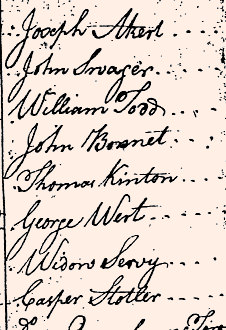 Joseph Akerl
John Swager
William Todd
John Bonnet
Thomas Kinton
George Wert
Widow Servy
Casper Stotler
Do